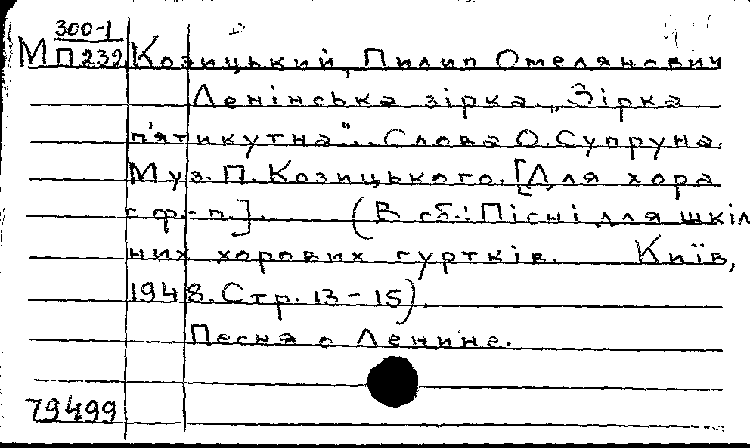 300-1
М П239 Козицький, Пилип Омелянович
Ленінська зірка „Зірка
п'ятикутна". Слова О. Супруна.
Муз. П. Козицького. [Для хора
с ф-п.]. (В сб.: Пісні для шкіль
них хорових гуртків. Київ,
1948. Стр. 13-15).
Песня о Ленине.
79499